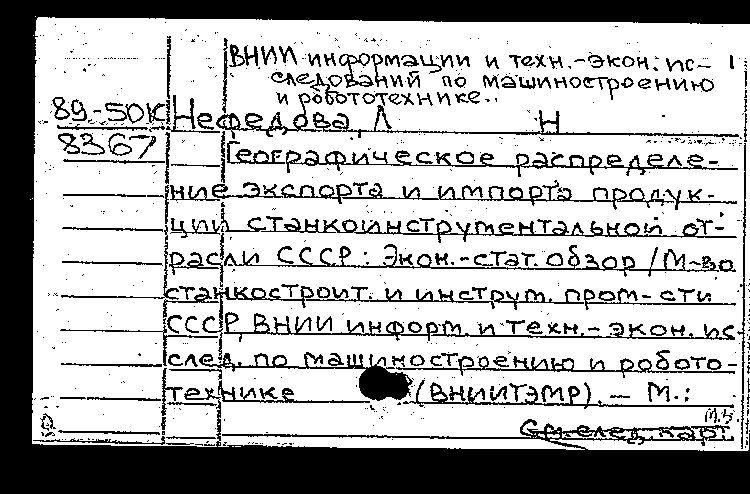 ВНИИ информации и техн.-экон. ис-
следований по машиностроению
и робототехнике..
89-50К Нефедова, Л Н
8367 Географическое распределе-
ние экспорта и импорта продук-
ции станкоинструментальной от-
расли СССР: Экон.-стат. обзор / М-во
станкостроит. и инструм. пром-сти
СССР, ВНИИ информ. и техн.-экон. ис-
след. по машиностроению и робото-
технике (ВНИИТЭМР). — М.:
См. след. кар.